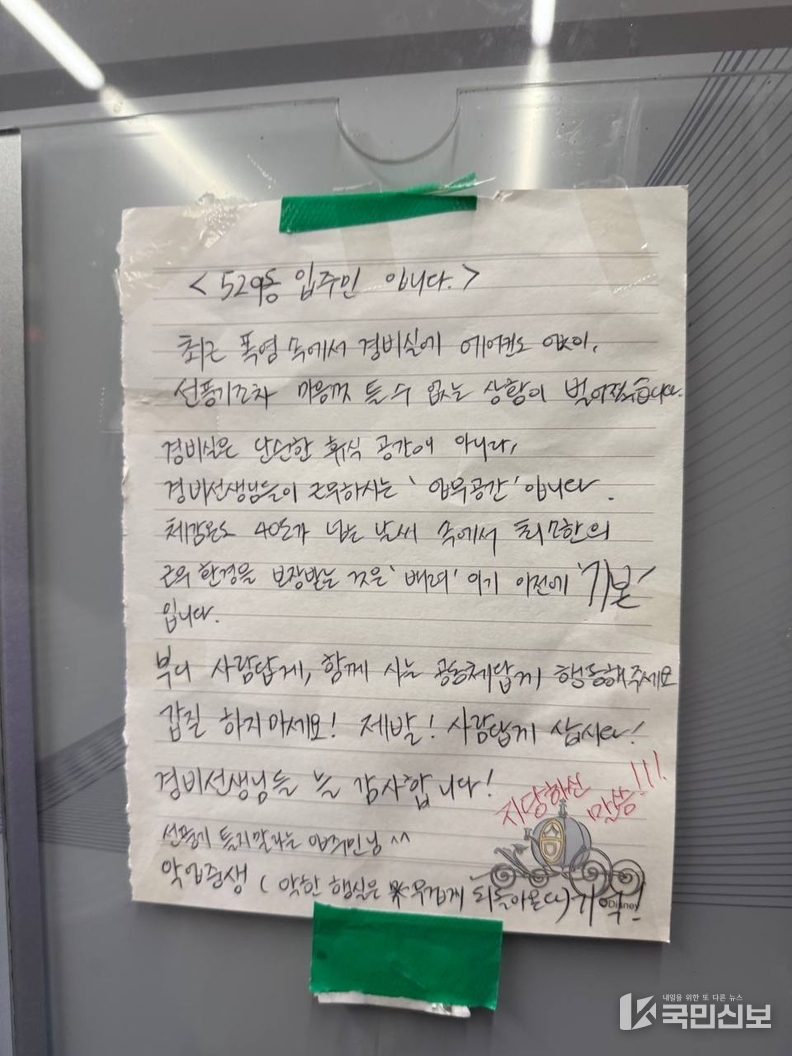 < 529동 입주민 입니다. >
최근 폭염 속에서 경비실에 에어컨도 없이,
선풍기조차 마음껏 틀 수 없는 상황이 벌어졌습니다.
경비실은 단순한 휴식 공간이 아니라,
경비선생님들이 근무하시는 '업무공간' 입니다.
체감온도 40도가 넘는 날씨 속에서 최소한의
근무 환경을 보장받는 것은 '배려' 이기 이전에 '기본'
입니다.
부디 사람답게, 함께 사는 공동체답게 행동해주세요
갑질 하지마세요! 제발! 사람답게 삽시다!
경비선생님들 늘 감사합니다!
지당하신 말씀!!!
선풍기 틀지말라는 입주민님 ^^
악업중생 ( 악한 행실은 무겁게 되돌아온다)
©Disney
내일을 위한 또 다른 뉴스
국민신보